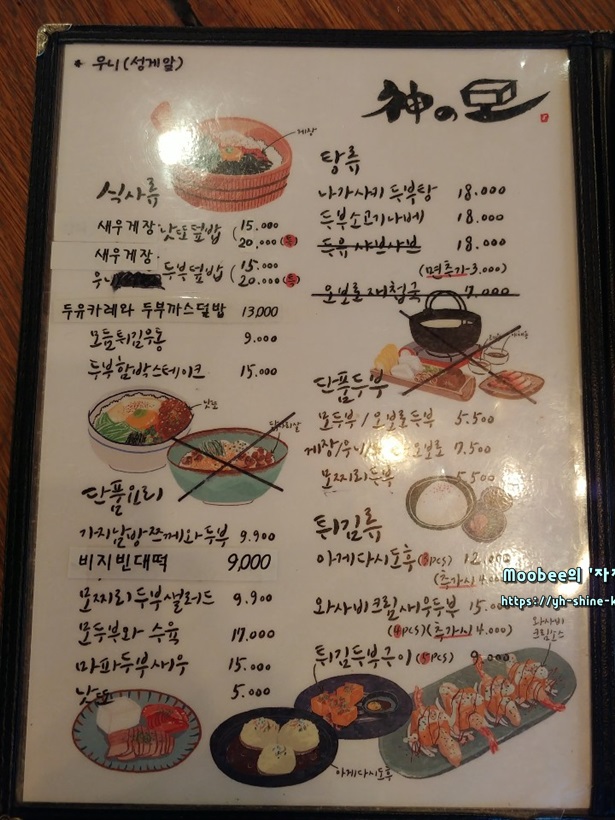 * 우니(성게알)
神の모
게장
식사류
새우게장 낫또덮밥 (15.000
20.000 (특)
새우게장.
우니 두부덮밥 (15.000
20.000 (특)
두유카레와 두부까스덮밥 13,000
모듬튀김우동 9.000
두부함박스테이크 15.000
낫또
닭다리살
단품요리
가지날방쯔께와두부 9.900
비지빈대떡 9,000
모찌리두부샐러드 9.900
모두부와 수육 17.000
마파두부새우 15.000
낫또 5.000
탕류
나가사키 두부탕 18.000
두부소고기나베 18.000
두유 샤브샤브 18.000
(면추가-3.000)
오보로 재첩국 7.000
단품두부
모두부/오보로두부 5.500
게장/우니/ 오보로 7.500
모찌리두부 5.500
튀김류
아게다시도후 (3pcs) 12.000
(추가시 4.000
와사비크림새우두부 15.000
(4pcs)(추가시 4.000)
튀김두부구이 (5pcs) 9.000
와사비
크림소스
아게다시도후
Moobee의 '자
https://yh-shine-k